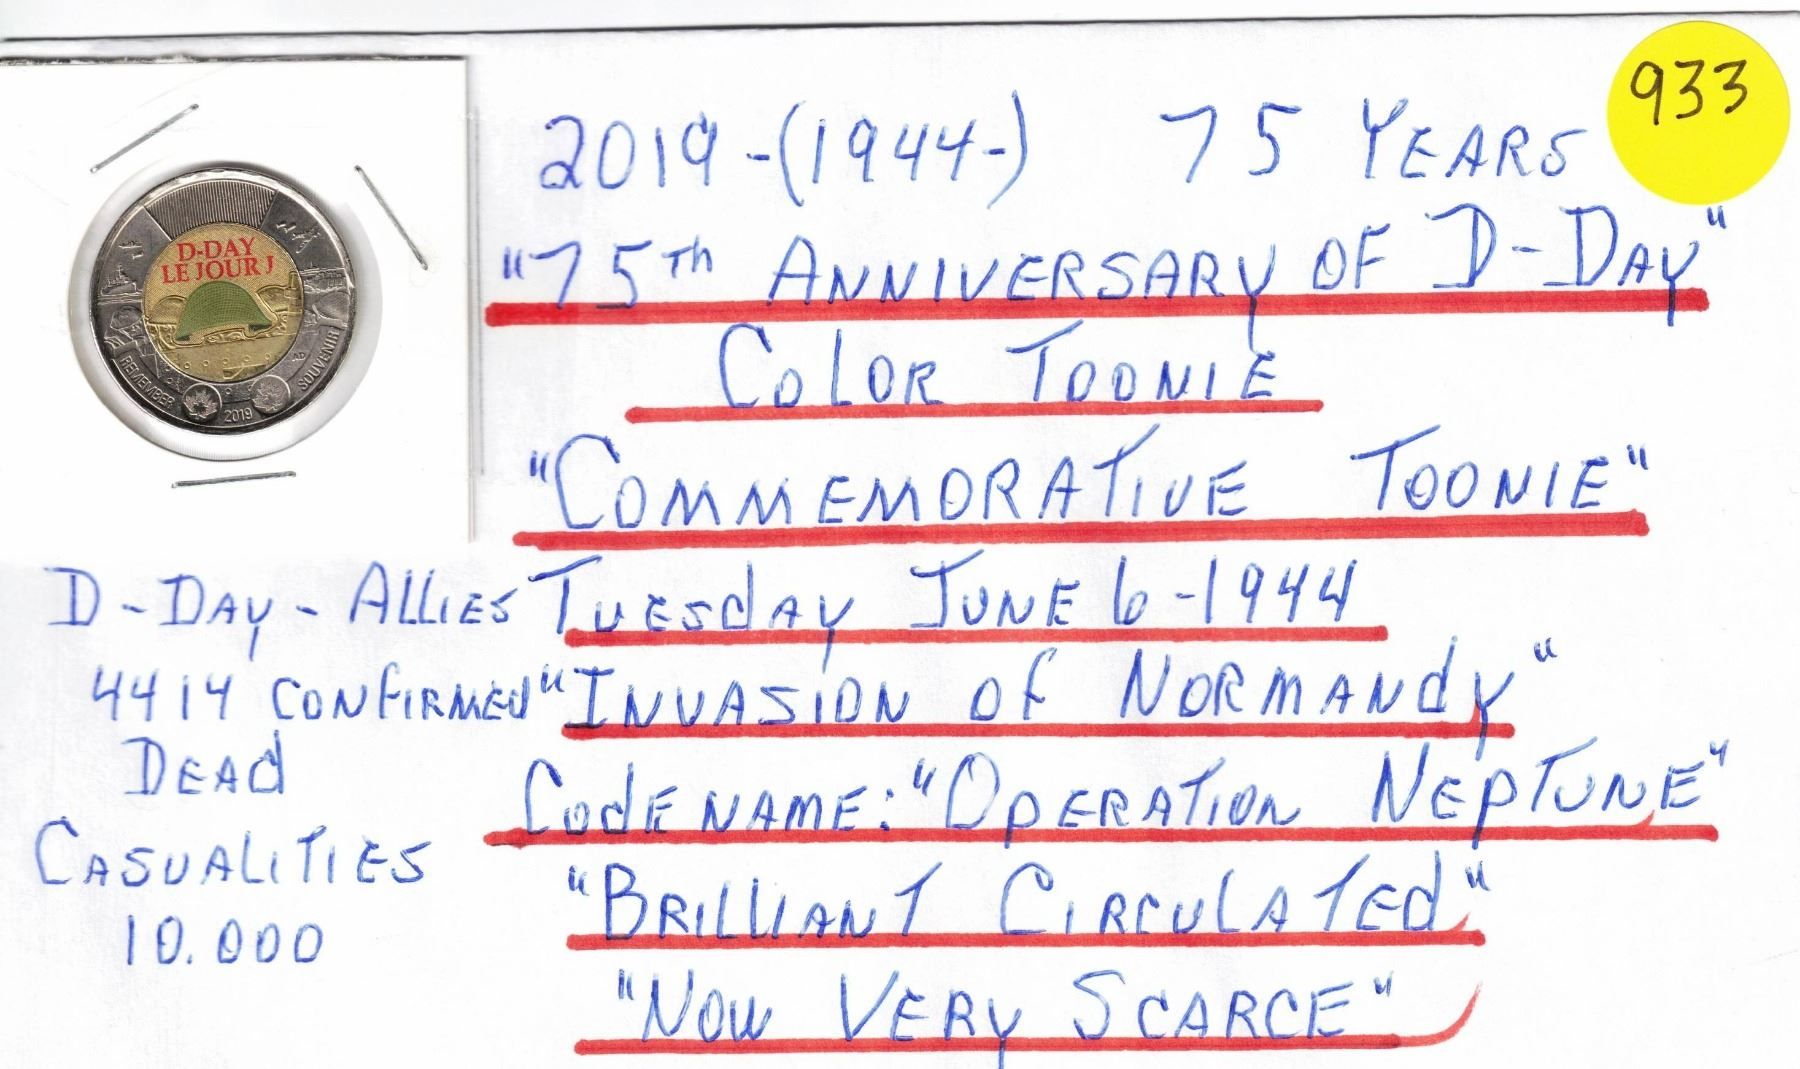 933
2019-(1944-) 75 YEARS
"75Th ANNIVERSARY OF D-DAY"
COLOR TOONIE
"COMMEMORATIVE TOONIE"
TUESdAY JUNE 6-1944
"INVASION OF NORMANdY"
COdE NAME: "OPERATION NEPTUNE"
"BRILLIANT CIRCULATEd"
"NOW VERY SCARCE"
D-DAY-ALLIES
4414 CONFIRMEd
DEAd
CASUALITIES
10.000
D-DAY
LE JOUR J
AD
REMEMBER
SOUVENIR
2019